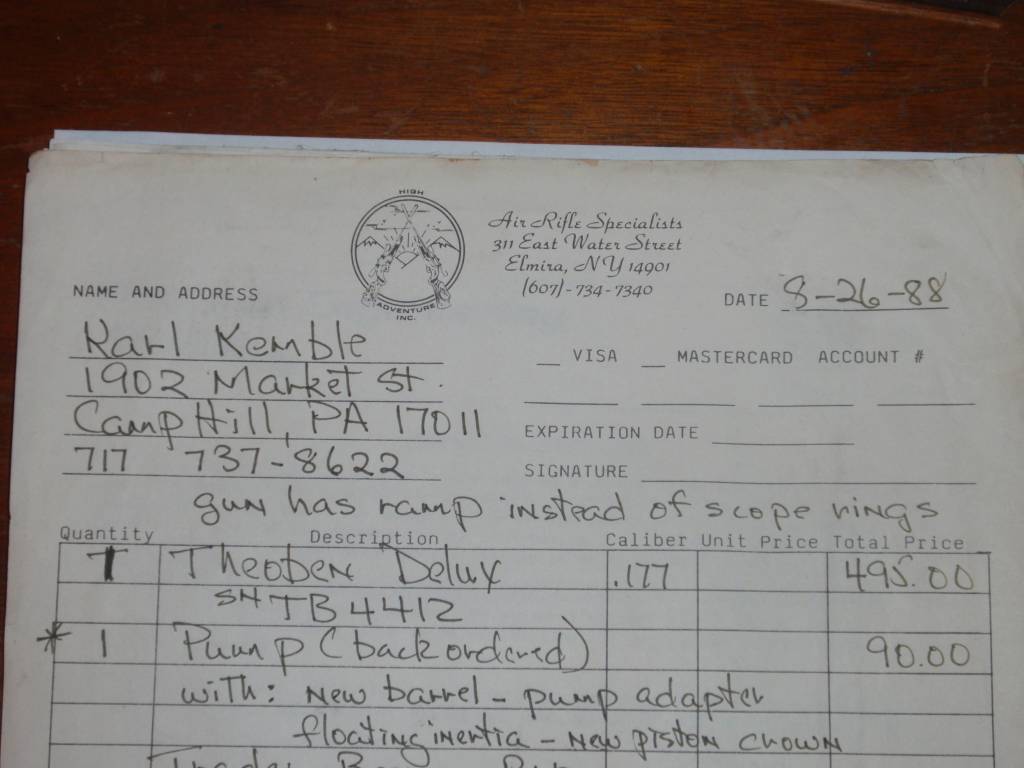 HIGH
ADVENTURE
INC.
Air Rifle Specialists
311 East Water Street
Elmira, NY 14901
(607)-734-7340
NAME AND ADDRESS
DATE 8-26-88
Karl Kemble
1902 Market St.
Camp Hill, PA 17011
717 737-8622
VISA MASTERCARD ACCOUNT #
EXPIRATION DATE
SIGNATURE
gun has ramp instead of scope rings
Quantity Description Caliber Unit Price Total Price
1 Theoben Delux .177 495.00
SN TB4412
* 1 Pump (back ordered) 90.00
with: New barrel - pump adapter
floating inertia - New piston crown